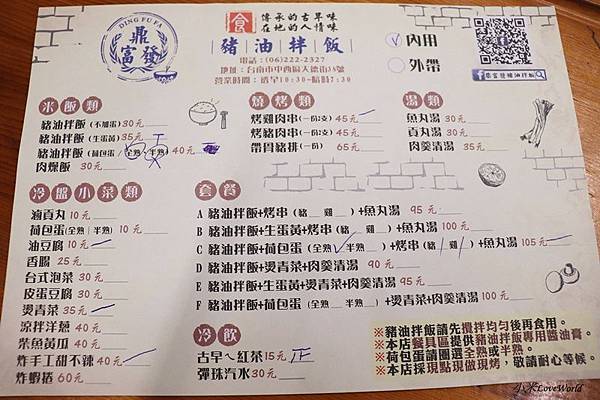 DING FU FA
鼎富發
食 傳承的古早味
在地的人情味
豬油拌飯
電話：(06)222-2327
營業時間：
內用
外帶
鼎富發豬油拌飯
米飯類
豬油拌飯(不加蛋)30元
豬油拌飯(生蛋黃)35元
豬油拌飯(荷包蛋(全熟、半熟))40元
肉燥飯 30元
燒烤類
烤雞肉串(一份/支) 45元
烤豬肉串(一份/支) 45元
帶骨豬排(一份) 65元
湯類
魚丸湯 30元
貢丸湯 30元
肉羹清湯 35元
冷盤小菜類
滷貢丸 10元
荷包蛋(全熟/半熟) 10元
油豆腐 10元
香腸 25元
台式泡菜 30元
皮蛋豆腐 30元
燙青菜 35元
涼拌洋蔥 40元
柴魚黃瓜 40元
炸手工甜不辣 40元
炸蝦捲 60元
套餐
A 豬油拌飯+烤串(豬__雞__)+魚丸湯 95元
B 豬油拌飯+生蛋黃+烤串(豬__雞__)+魚丸湯 100元
C 豬油拌飯+荷包蛋(全熟__半熟__)+烤串(豬__雞__)+魚丸湯 105元
D 豬油拌飯+燙青菜+肉羹清湯 90元
E 豬油拌飯+生蛋黃+燙青菜+肉羹清湯 95元
F 豬油拌飯+荷包蛋(全熟__半熟__)+燙青菜+肉羹清湯 100元
冷飲
古早ㄟ紅茶15元
彈珠汽水30元
※豬油拌飯請先攪拌均勻後再食用。
※本店餐具區提供豬油拌飯專用醬油膏。
※荷包蛋請圈選全熟或半熟。
※本店採現點現做現烤，敬請耐心等候。
小米LoveWorld